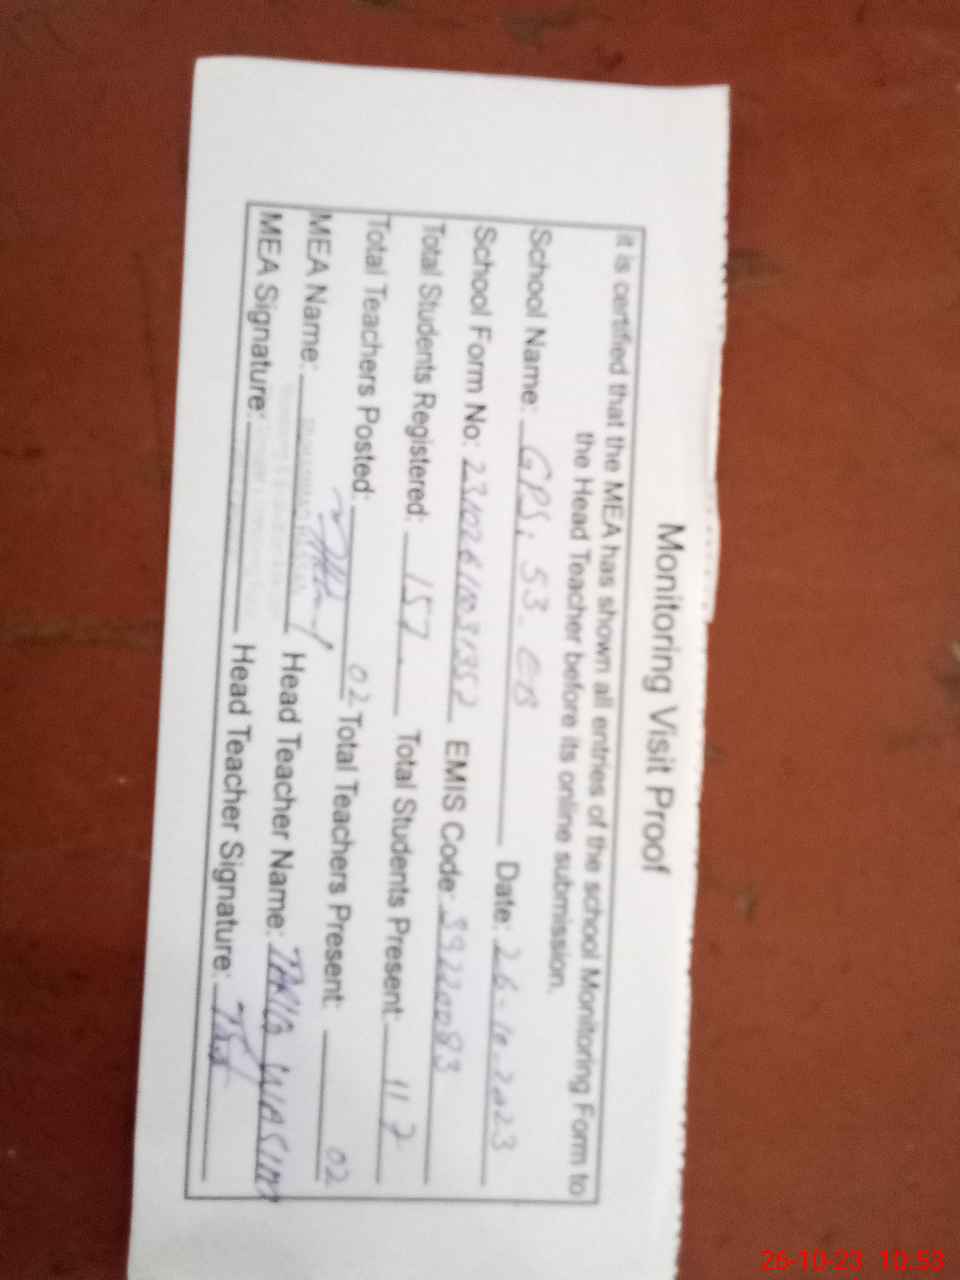 Monitoring Visit Proof
It is certified that the MEA has shown all entries of the school Monitoring Form to
the Head Teacher before its online submission.
School Name: GPS, 53-EB Date: 26-10-2023
School Form No: EMIS Code: 39220083
Total Students Registered: 157. Total Students Present: 117
Total Teachers Posted: 02 Total Teachers Present: 02
MEA Name: Head Teacher Name: TARIQ WASIM
MEA Signature: Head Teacher Signature:
26-10-23 10:53